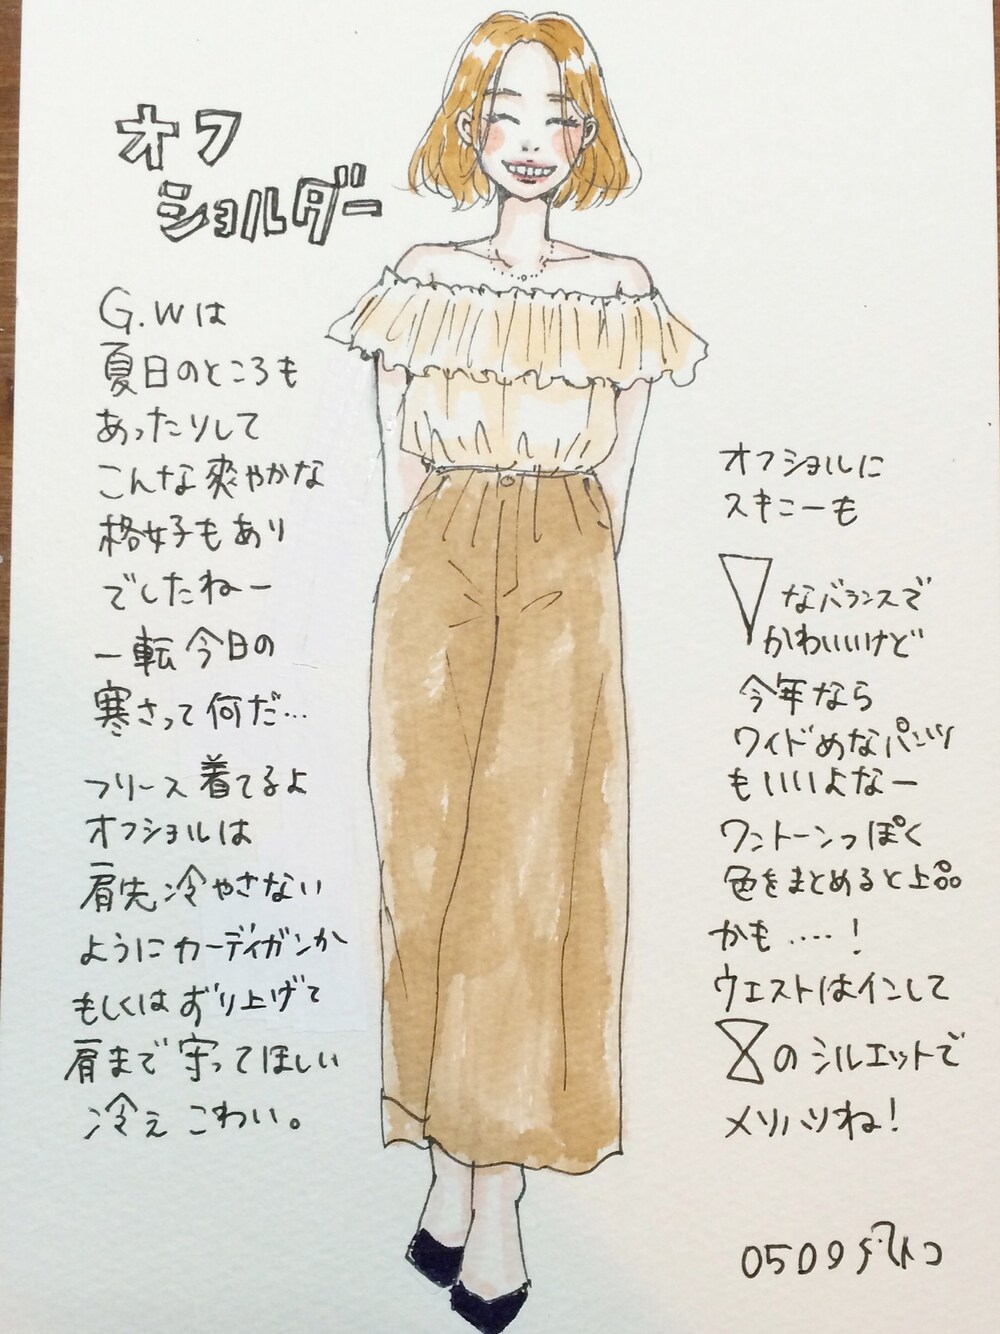 オフ
ショルダー
G.Wは
夏日のところも
あったりして
こんな爽やかな
格好もあり
でしたねー
一転今日の
寒さって何だ…
フリース着てるよ
オフショルは
肩先冷やさない
ようにカーディガンか
もしくはずり上げて
肩まで守ってほしい
冷えこわい。
オフショルに
スキニーも
▽なバランスで
かわいいけど
今年なら
ワイドめなパンツ
もいいよなー
ワントーンっぽく
色をまとめると上品
かも....!
ウエストはインして
のシルエットで
メリハリね!
0509